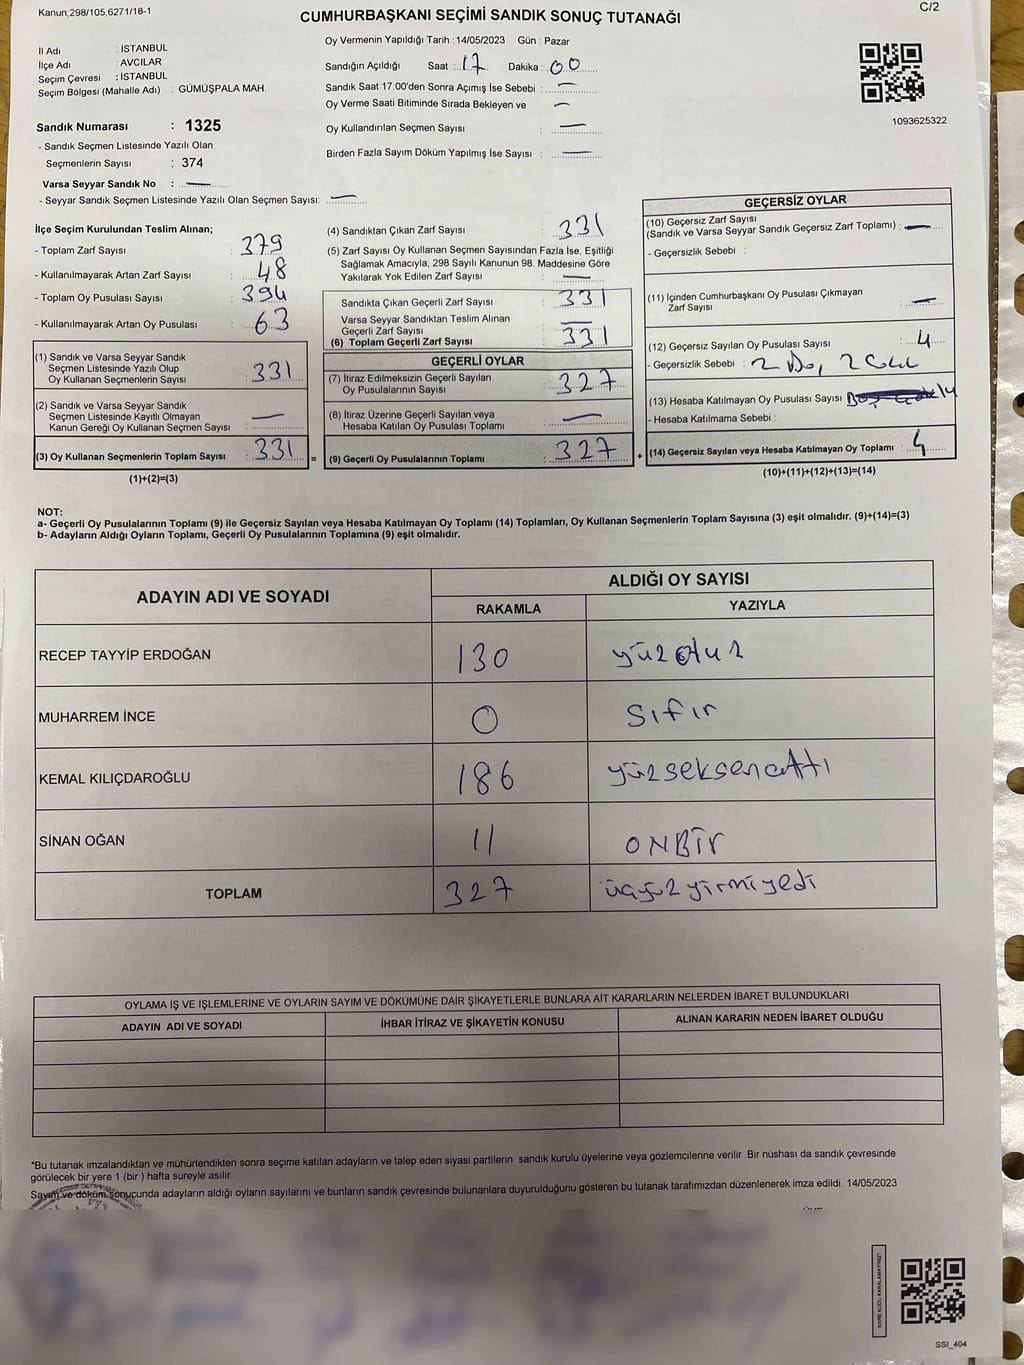 Kanun;298/105,6271/18-1
C/2
CUMHURBAŞKANI SEÇİMİ SANDIK SONUÇ TUTANAĞI
İl Adı : İSTANBUL
İlçe Adı : AVCILAR
Seçim Çevresi : İSTANBUL
Seçim Bölgesi (Mahalle Adı) : GÜMÜŞPALA MAH.
Sandık Numarası : 1325
- Sandık Seçmen Listesinde Yazılı Olan
Seçmenlerin Sayısı : 374
Varsa Seyyar Sandık No : —
- Seyyar Sandık Seçmen Listesinde Yazılı Olan Seçmen Sayısı: —
Oy Vermenin Yapıldığı Tarih : 14/05/2023 Gün : Pazar
Sandığın Açıldığı Saat : 17 Dakika : 00
Sandık Saat 17:00'den Sonra Açımış İse Sebebi : —
Oy Verme Saati Bitiminde Sırada Bekleyen ve —
Oy Kullandırılan Seçmen Sayısı : —
Birden Fazla Sayım Döküm Yapılmış İse Sayısı : —
1093625322
İlçe Seçim Kurulundan Teslim Alınan;
- Toplam Zarf Sayısı : 379
- Kullanılmayarak Artan Zarf Sayısı : 48
- Toplam Oy Pusulası Sayısı : 394
- Kullanılmayarak Artan Oy Pusulası : 63
(1) Sandık ve Varsa Seyyar Sandık
Seçmen Listesinde Yazılı Olup
Oy Kullanan Seçmenlerin Sayısı : 331
(2) Sandık ve Varsa Seyyar Sandık
Seçmen Listesinde Kayıtlı Olmayan
Kanun Gereği Oy Kullanan Seçmen Sayısı : —
(3) Oy Kullanan Seçmenlerin Toplam Sayısı : 331 =
(1)+(2)=(3)
(4) Sandıktan Çıkan Zarf Sayısı : 331
(5) Zarf Sayısı Oy Kullanan Seçmen Sayısından Fazla İse, Eşitliği
Sağlamak Amacıyla; 298 Sayılı Kanunun 98. Maddesine Göre
Yakılarak Yok Edilen Zarf Sayısı : —
Sandıkta Çıkan Geçerli Zarf Sayısı : 331
Varsa Seyyar Sandıktan Teslim Alınan
Geçerli Zarf Sayısı : —
(6) Toplam Geçerli Zarf Sayısı : 331
GEÇERLİ OYLAR
(7) İtiraz Edilmeksizin Geçerli Sayılan
Oy Pusulalarının Sayısı : 327
(8) İtiraz Üzerine Geçerli Sayılan veya
Hesaba Katılan Oy Pusulası Toplamı : —
(9) Geçerli Oy Pusulalarının Toplamı : 327 +
GEÇERSİZ OYLAR
(10) Geçersiz Zarf Sayısı
(Sandık ve Varsa Seyyar Sandık Geçersiz Zarf Toplamı) : —
- Geçersizlik Sebebi :
(11) İçinden Cumhurbaşkanı Oy Pusulası Çıkmayan
Zarf Sayısı : —
(12) Geçersiz Sayılan Oy Pusulası Sayısı : 4
- Geçersizlik Sebebi : 2 2
(13) Hesaba Katılmayan Oy Pusulası Sayısı
- Hesaba Katılmama Sebebi :
(14) Geçersiz Sayılan veya Hesaba Katılmayan Oy Toplamı : 4
(10)+(11)+(12)+(13)=(14)
NOT:
a- Geçerli Oy Pusulalarının Toplamı (9) ile Geçersiz Sayılan veya Hesaba Katılmayan Oy Toplamı (14) Toplamları, Oy Kullanan Seçmenlerin Toplam Sayısına (3) eşit olmalıdır. (9)+(14)=(3)
b- Adayların Aldığı Oyların Toplamı, Geçerli Oy Pusulalarının Toplamına (9) eşit olmalıdır.
ADAYIN ADI VE SOYADI
ALDIĞI OY SAYISI
RAKAMLA YAZIYLA
RECEP TAYYİP ERDOĞAN 130 yüzotuz
MUHARREM İNCE 0 Sıfır
KEMAL KILIÇDAROĞLU 186 yüzseksenaltı
SİNAN OĞAN 11 ONBİR
TOPLAM 327 üçyüzyirmiyedi
OYLAMA İŞ VE İŞLEMLERİNE VE OYLARIN SAYIM VE DÖKÜMÜNE DAİR ŞİKAYETLERLE BUNLARA AİT KARARLARIN NELERDEN İBARET BULUNDUKLARI
ADAYIN ADI VE SOYADI İHBAR İTİRAZ VE ŞİKAYETİN KONUSU ALINAN KARARIN NEDEN İBARET OLDUĞU
*Bu tutanak imzalandıktan ve mühürlendikten sonra seçime katılan adayların ve talep eden siyasi partilerin sandık kurulu üyelerine veya gözlemcilerine verilir .Bir nüshası da sandık çevresinde
görülecek bir yere 1 (bir ) hafta süreyle asılır.
Sayım ve döküm sonucunda adayların aldığı oyların sayılarını ve bunların sandık çevresinde bulunanlara duyurulduğunu gösteren bu tutanak tarafımızdan düzenlenerek imza edildi. 14/05/2023
KARE KODU KARALAMAYINIZ!
SSI_404